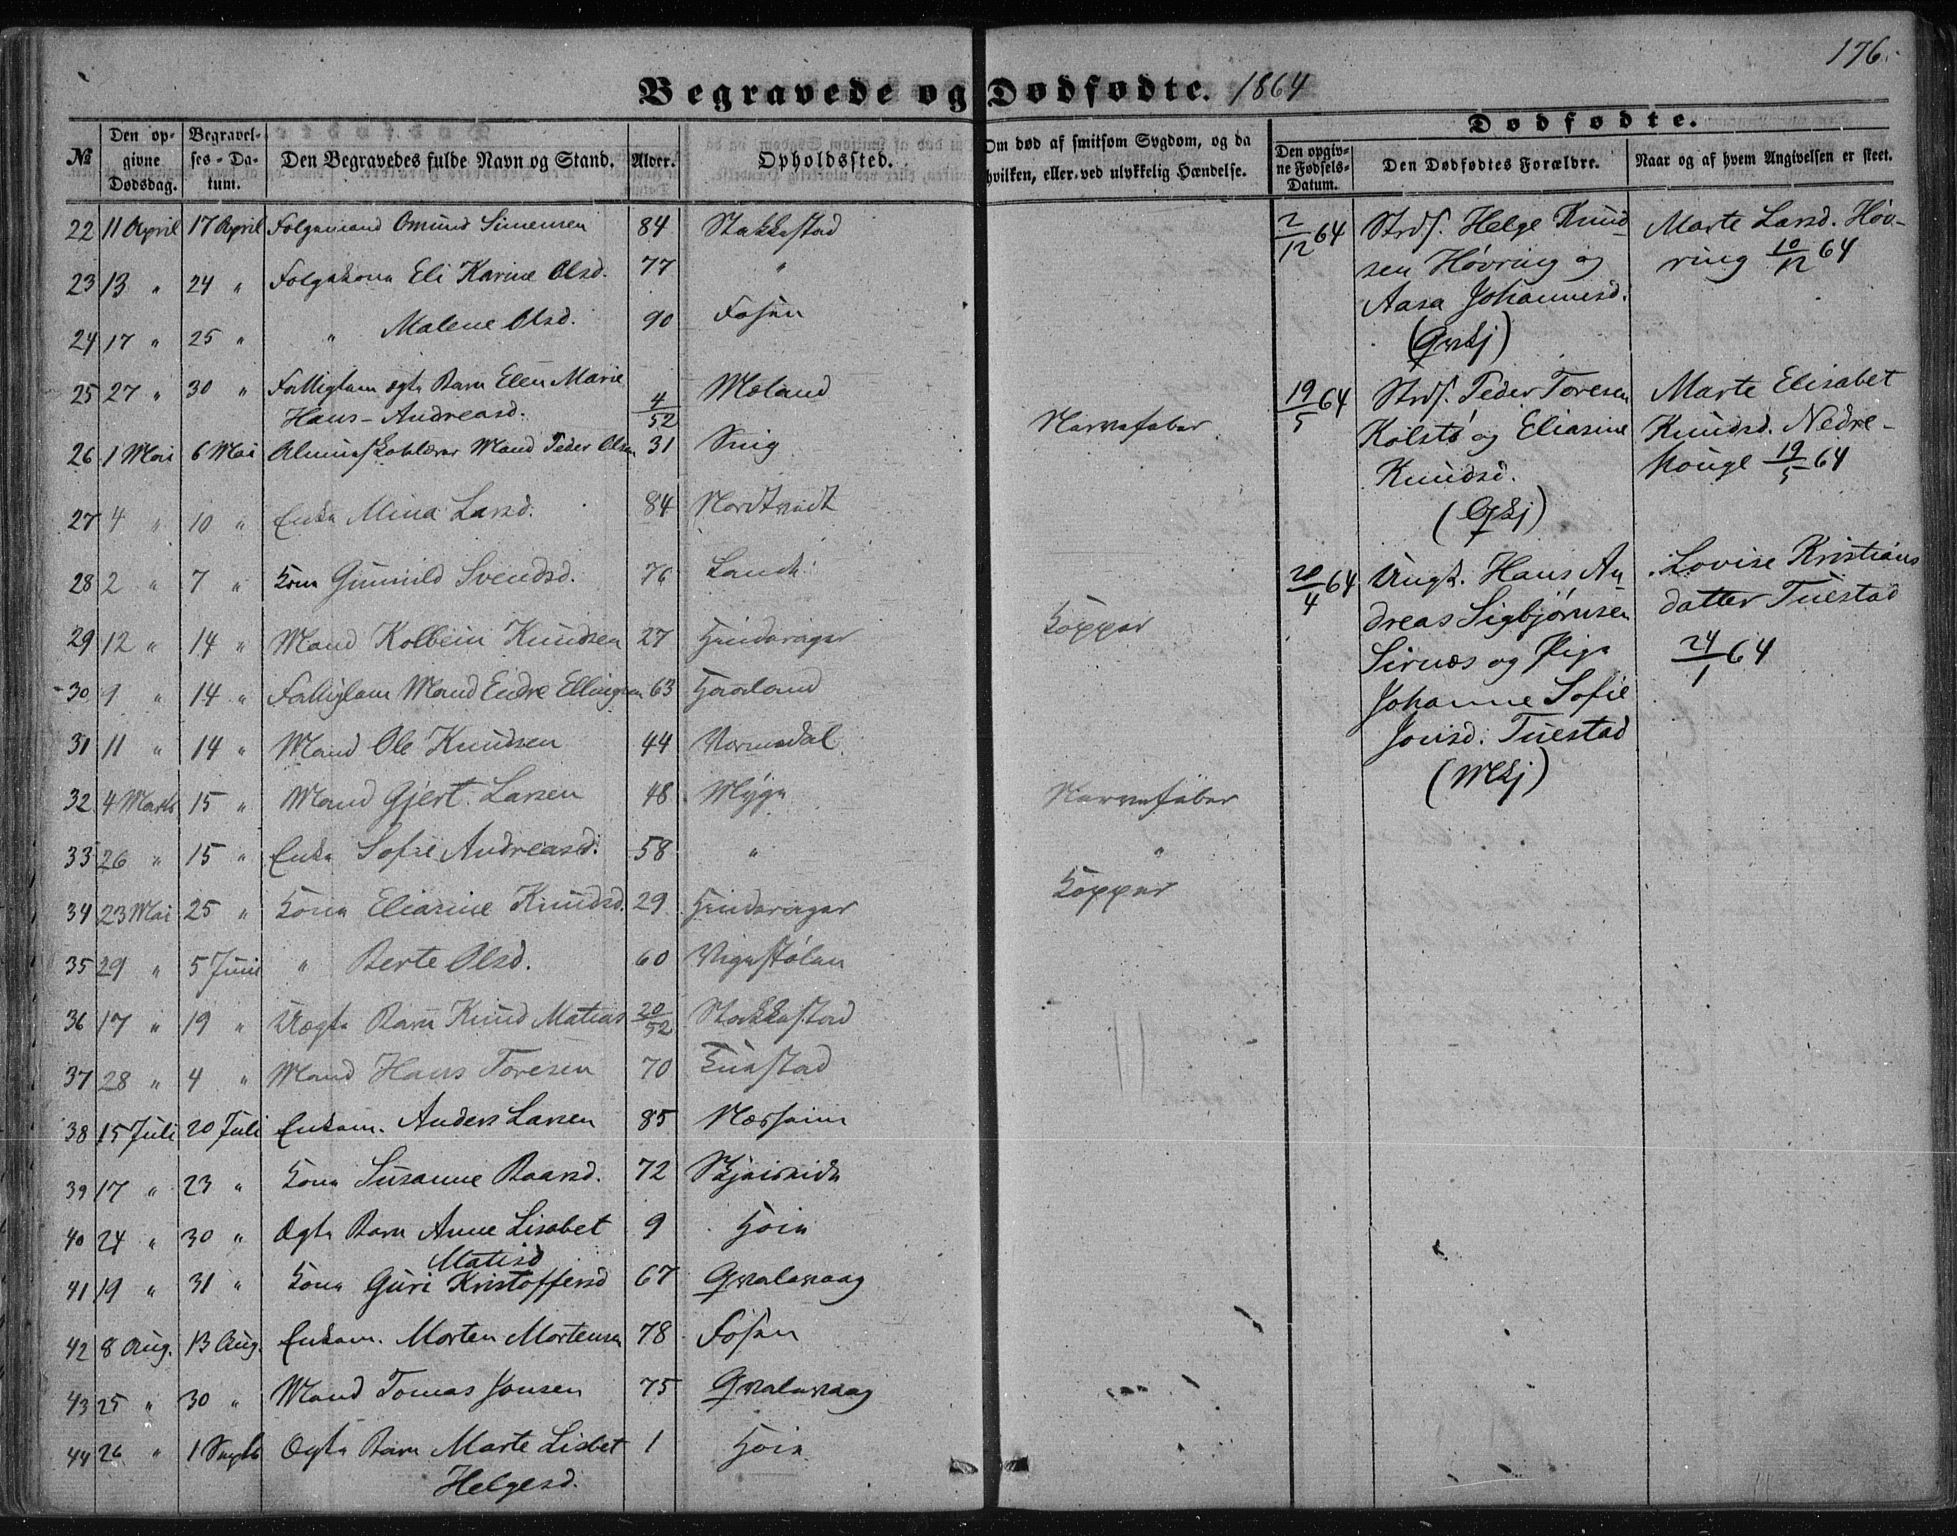 176.
Begravede og Dødfødte. 1864
№ | Den opgivne Dødsdag. | Begravelses-Datum. | Den Begravedes fulde Navn og Stand. | Alder. | Opholdssted. | Om død af smitsom Sygdom, og da hvilken, eller ved ulykkelig Hændelse.
22 | 11 April | 17 April | Folgemand Omund Simensen | 84 | Stakkestad
23 | 13 " | 24 " | Folgekona Eli Karine Olsd. | 77 | "
24 | 17 " | 25 " | " Malene Olsd. | 90 | Fosen
25 | 27 " | 30 " | Fattiglem ægte Barn Elen Marie
Hans-Andreasd. | 4/52 | Meland
26 | 1 Mai | 6 Mai | Almueskolelærer Mand Peder Olsen | 31 | | Nervefeber
27 | 4 " | 10 " | Enke Mina Larsd. | 84 | Nordtveit
28 | 2 " | 7 " | Kone Gunnild Svendsd. | 76 | Lande
29 | 12 " | 14 " | Mand Kolbein Knudsen | 27 | Hinderager | Kopper
30 | 9 " | 14 " | Fattiglem Mand Endre Ellingsen | 63 | Haaland
31 | 11 " | 14 " | Mand Ole Knudsen | 44 | Vormedal
32 | 4 Marts | 15 " | Mand Gjert Larsen | 48 | Myge | Nervefeber
33 | 26 " | 15 " | Enke Sofie Andreasd. | 58 | " | "
34 | 23 Mai | 25 " | Kone Eliasine Knudsd. | 29 | Hinderager | Kopper
35 | 29 " | 5 Juni | " Berte Olsd. | 60 | Vigestølen
36 | 17 " | 19 " | Uægte Barn Knud Matias | 20/52 | Stakkestad
37 | 28 " | 4 " | Mand Hans Toresen | 70 | Tuestad
38 | 15 Juli | 20 Juli | Enkem. Anders Larsen | 85 | Næsheim
39 | 17 " | 23 " | Kone Susanne Baarsd. | 72 | Skjeiseide
40 | 24 " | 30 " | Ægte Barn Anne Lisabet
Matisd | 9 | Høie
41 | 19 " | 31 " | Kone Guri Kristoffersd | 67 | Qvalavaag
42 | 8 Aug. | 13 Aug. | Enkem. Morten Mortensen | 78 | Fosen
43 | 25 " | 30 " | Mand Tomas Jonsen | 75 | Qvalavaag
44 | 26 " | 1 Septb | Ægte Barn Marte Lisbet
Helgesd. | 1 | Høie
Dødfødte.
Den opgivne Fødsels-Datum. | Den Dødfødtes Forældre. | Naar og af hvem Angivelsen er skeet.
2/12 64 | Strds. Helge Knud- | Marte Larsd. Høv-
sen Høvring og | ring 10/12 64
Aasa Johannesd.
(Qvkj)
19/5 64 | Strds. Peder Toresen | Marte Elisabet
Kolstø og Eliasine | Knudsd. Nedre-
Knudsd. | houge 19/5 64
(Qkj)
20/4 64 | Ungk. Hans An | Lovise Kristians
dreas Sigbjørnsen | datter Tuestad
Sirnæs og Pige | 24/1 64
Johanne Sofie
Jonsd. Tuestad
(Mkj)